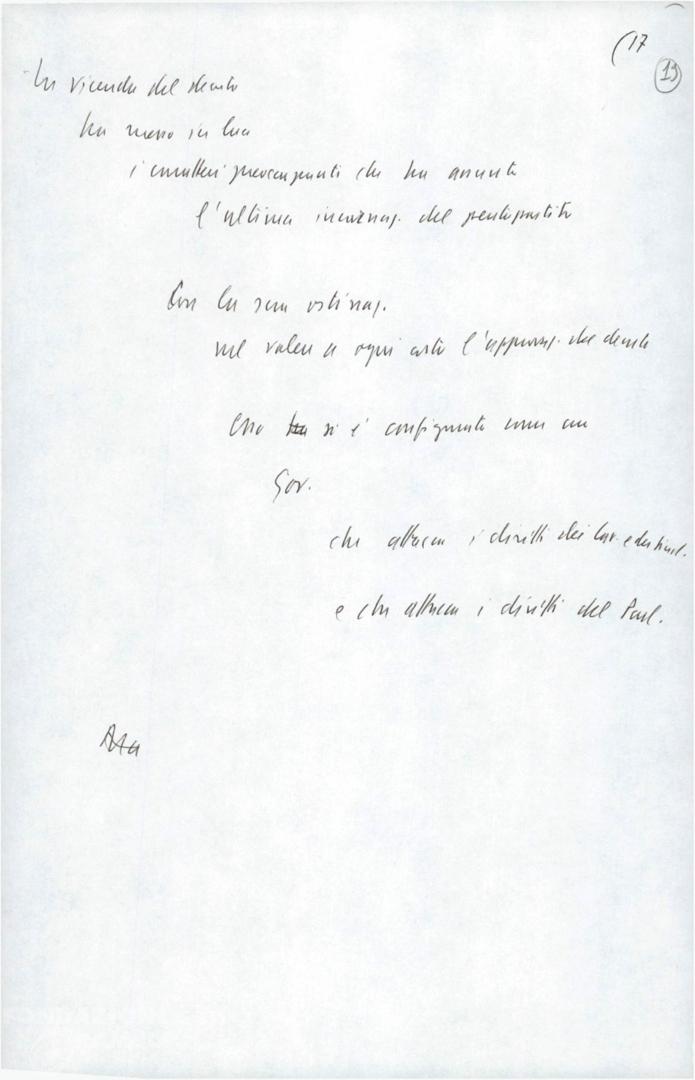 (17
19
La vicenda del decreto
ha messo in luce
i caratteri preoccupanti che ha assunto
l'ultima incarnaz. del pentapartito
Con la sua ostinaz.
nel volere a ogni costo l'approvaz. del decreto
Esso ha si è configurato come un
Gov.
che attacca i diritti dei lav. e dei sind.
e che attacca i diritti del Parl.